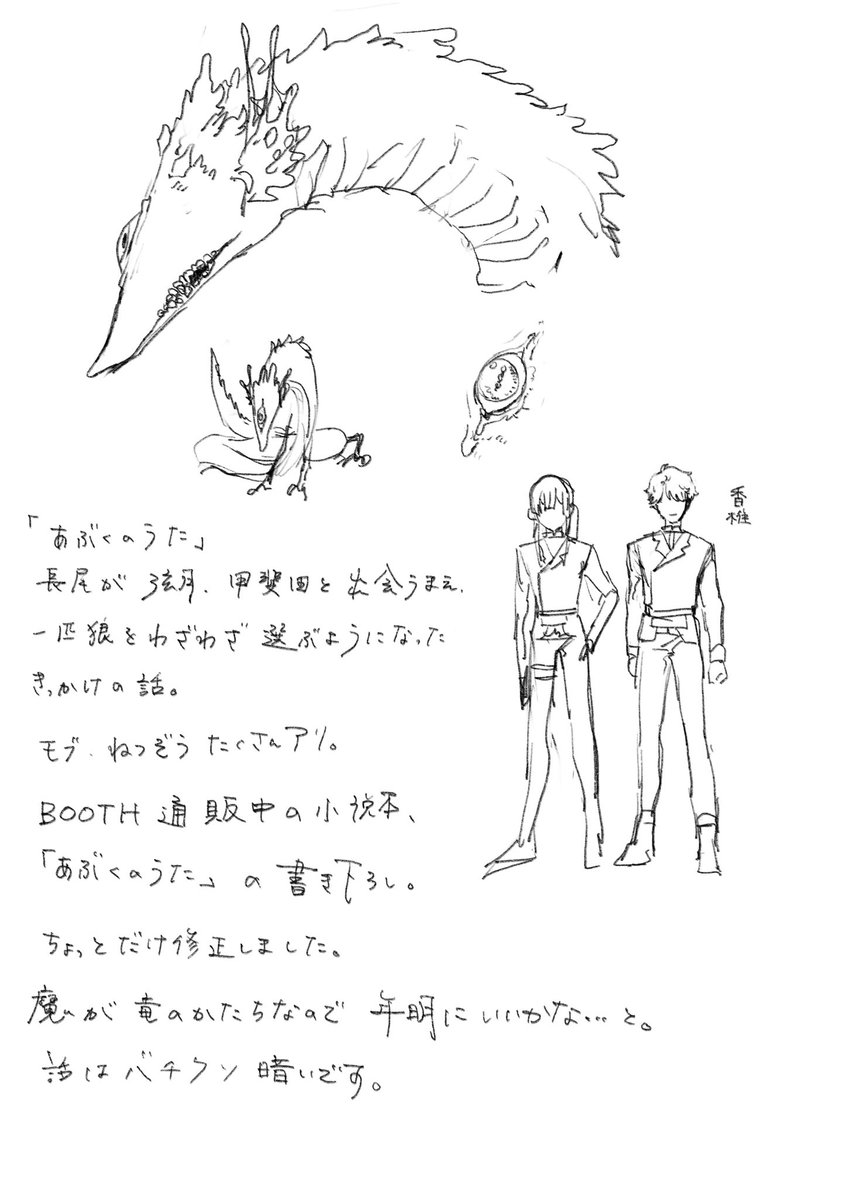 香椎
「あぶくのうた」
長尾が弦月、甲斐田と出会うまえ、
一匹狼をわざわざ選ぶようになった
きっかけの話。
モブ、ねつぞうたくさんアリ。
BOOTH通販中の小説本、
「あぶくのうた」の書き下ろし。
ちょっとだけ修正しました。
魔が竜のかたちなので年明にいいかな…と。
話はバチクソ暗いです。